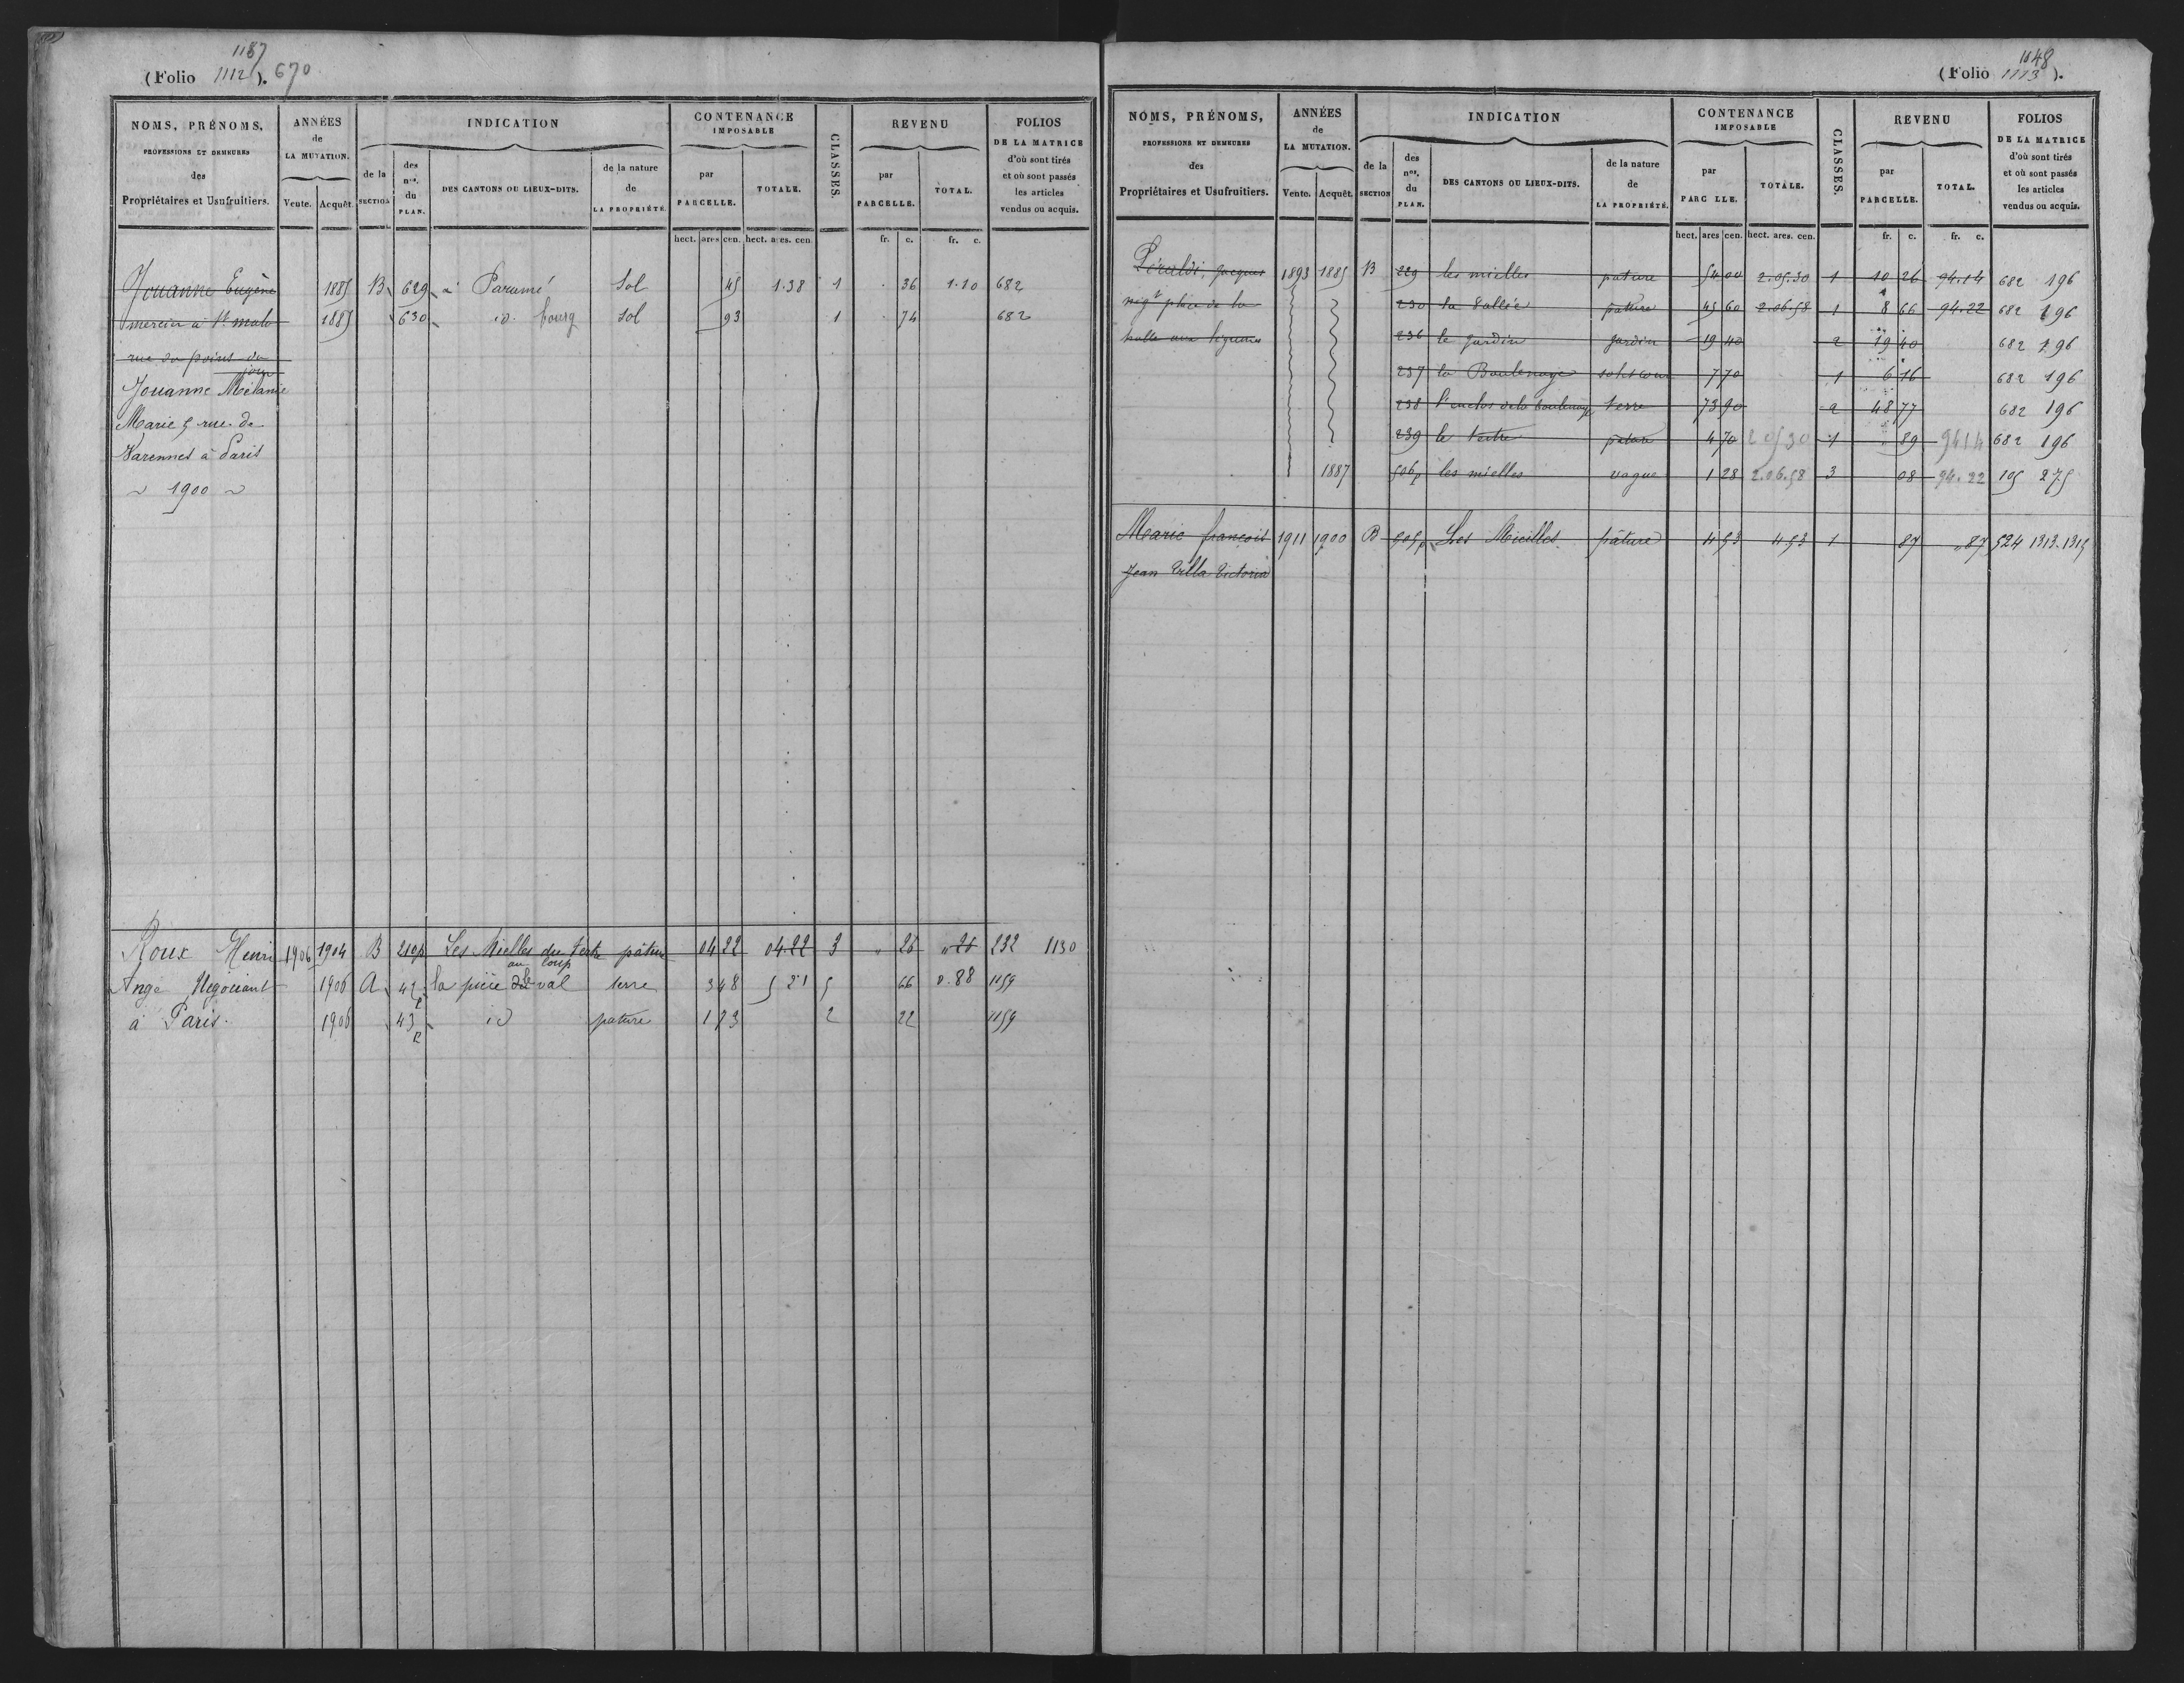 1187
(Folio 1112). 670
NOMS, PRÉNOMS, PROFESSIONS ET DEMEURES des Propriétaires et Usufruitiers. ANNÉES de LA MUTATION. Vente. Acquêt. INDICATION de la SECTION des nos. du PLAN. DES CANTONS OU LIEUX-DITS. de la nature de LA PROPRIÉTÉ. CONTENANCE IMPOSABLE par PARCELLE. TOTALE. CLASSES. REVENU par PARCELLE. TOTAL. FOLIOS DE LA MATRICE d'où sont tirés et où sont passés les articles vendus ou acquis.
hect. ares cen. hect. ares. cen. fr. c. fr. c.
Jouanne Eugène 1885 B 629 à Paramé Sol 45 1.38 1 36 1.10 682
mercier à St malo 1885 630 id. bourg sol 93 1 74 682
rue du point du
jour
Jouanne Mélanie
Marie 5 rue de
Varennes à Paris
1900
Roux Henri 1906 1904 B 210p Les Mielles du Tertre pâture 04 22 04.22 3 " 26 " 26 232 1130
au loup
Ange Négociant 1906 A 42p la pièce du val terre 348 5 21 5 66 0.88 1159
à Paris. 1906 43p id pature 173 2 22 1159
1148
(Folio 1113).
NOMS, PRÉNOMS, PROFESSIONS ET DEMEURES des Propriétaires et Usufruitiers. ANNÉES de LA MUTATION. Vente. Acquêt. INDICATION de la SECTION des nos. du PLAN. DES CANTONS OU LIEUX-DITS. de la nature de LA PROPRIÉTÉ. CONTENANCE IMPOSABLE par PARC LLE. TOTALE. CLASSES. REVENU par PARCELLE. TOTAL. FOLIOS DE LA MATRICE d'où sont tirés et où sont passés les articles vendus ou acquis.
hect. ares cen. hect. ares. cen. fr. c. fr. c.
Péraldi, Jacques 1893 1885 B 229 les mielles pature 54 00 2.05.30 1 10 26 94.14 682 196
négt place de la 230 la Vallée pature 45 60 2.06.58 1 8 66 94.22 682 196
halle aux légumes 236 le jardin jardin 19 40 2 19 40 682 196
237 la Boulnaye sol et cour 7 70 1 6 16 682 196
238 l'enclos de la boulnaye terre 73 90 2 48 77 682 196
239 le tertre pature 4 70 2 05 30 1 " 89 94 14 682 196
1887 506p les mielles vague 1 28 2.06.58 3 08 94.22 105 275
Marie françois 1911 1900 B 505p Les Mielles pâture 4 53 4 53 1 87 " 87 524 1313.1315
Jean Villa Victoria